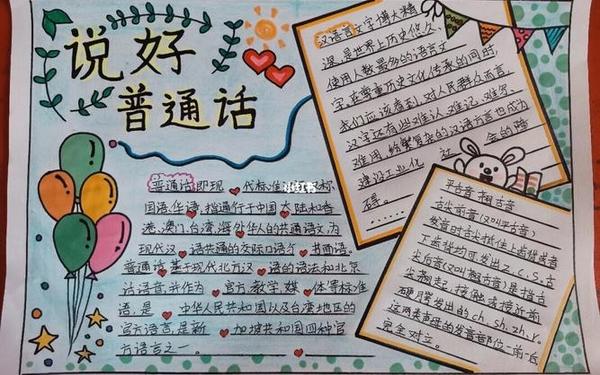 说好
普通话
普通话即现代标准
国语、华语,指通行于中国大陆和香
港、澳门、台湾、海外华人的共通语文,为
现代汉语共通的交际口语与书面语。
普通话基于现代北方汉语的语法和北京
话语音,并作为官方、教学、媒体等标准
语,是中华人民共和国以及台湾地区的
官方语言,是新加坡共和国四种官
方语言之一。
小红书
汉语言文字博大精
深,是世界上历史悠久、
使用人数最多的语言文
字,在尊重历史文化传承的同时,
我们应该看到,对人民群众而言,
汉字还有些难认、难记、难写、
难用,纷繁复杂的汉语方言也成为
建设工业化、社会的障
碍。
平舌音 翘舌音
古尖前音(又叫平舌音),
发音时舌尖抵住上齿背或
下齿背均可发出z、c、s,舌
尖后音(又叫翘舌音)是指舌
尖翘起,接触或接近前
硬腭发出的ch、sh、zh、r,
这两类声母的发音部位一前一后
完全对立。